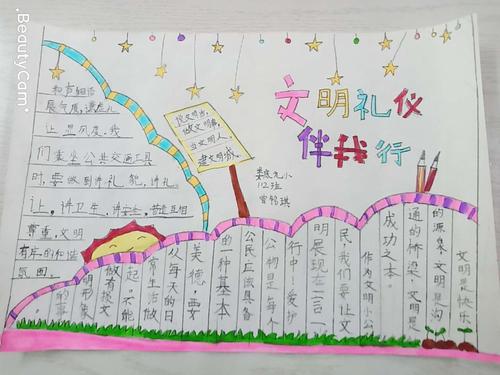 .BeautyCam.
文明礼仪
伴我行
说文明话,
做文明事,
当文明人,
建文明城。
112班
和声细语
展气度,谦虚礼
让显风度。我
们乘坐公共交通工具
时,要做到讲礼貌,讲礼
让,讲卫生,
尊重,文明
有序的和谐
氛围。
文明是快乐
的源泉,文明是沟
通的桥梁,文明是
成功之本。
作为文明小公
民,我们要让文
明展现在一言一
行中!爱护
公物是每个
公民应该具备
的一种基本
美德,要
从每天的日
常生活做
起。不能
做有损文
明形象
的事